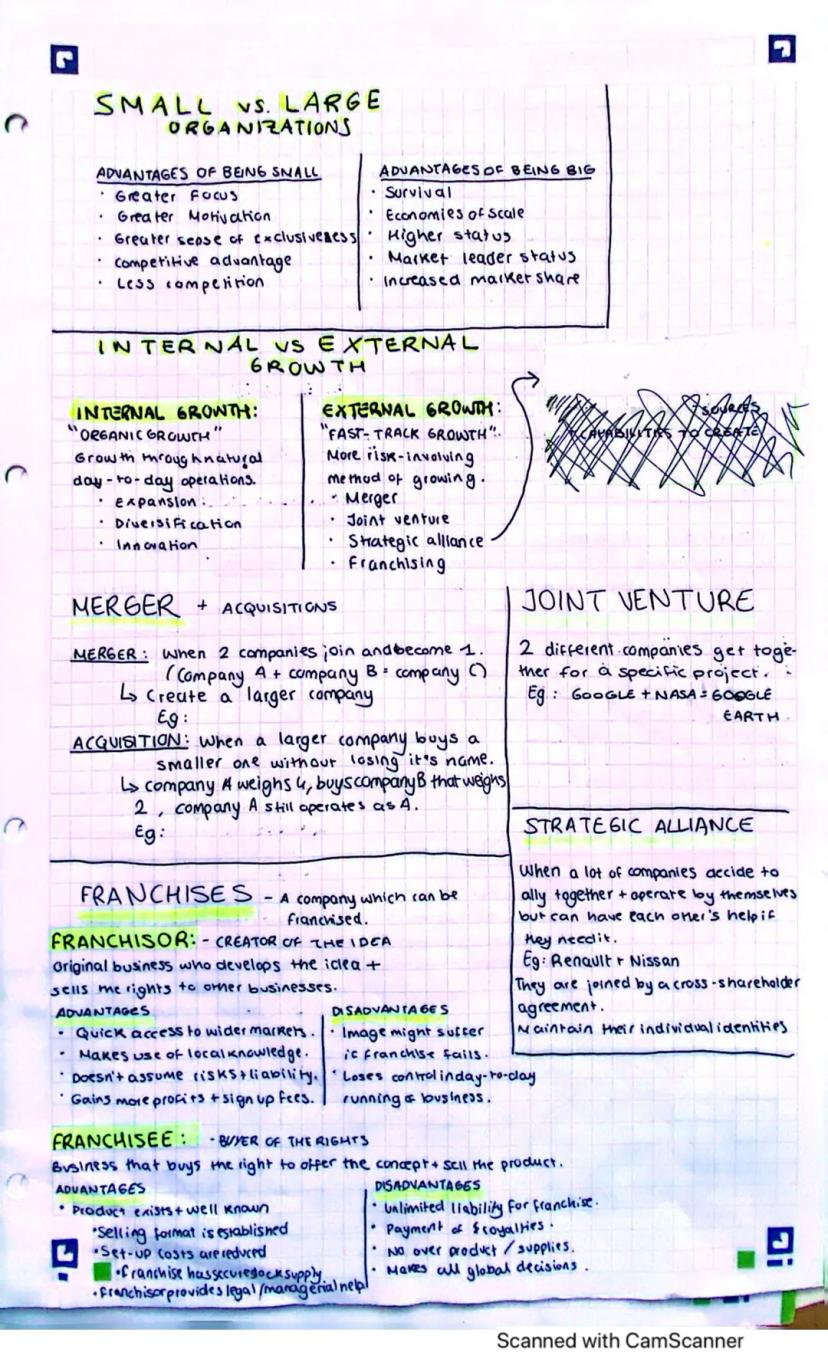 SMALL vs. LARGE
ORGANIZATIONS
ADVANTAGES OF BEING SMALL
· Greater Focus
· Greater Motivation
· Greater sense of exclusiveness
· competitive advantage
· Less competition
ADVANTAGES OF BEING BIG
· Survival
· Economies of scale
· Higher status
· Market leader status
· Increased market share
INTERNAL VS EXTERNAL
GROWTH
INTERNAL GROWTH:
"ORGANIC GROWTH"
Growth through natural
day-to-day operations.
· Expansion
· Diversification
· Innovation
EXTERNAL GROWTH:
"FAST-TRACK GROWTH".
More risk-involving
method of growing.
· Merger
· Joint venture
· Strategic alliance
· Franchising
SOURCES
CAPABILITIES TO CREATE
MERGER + ACQUISITIONS
MERGER: When 2 companies join and become 1.
(Company A + company B = company C)
↳ Create a larger company
Eg:
ACQUISITION: When a larger company buys a
smaller one without losing it's name.
↳ company A weighs 4, buys company B that weighs
2, company A still operates as A.
Eg:
JOINT VENTURE
2 different companies get toge-
ther for a specific project.
Eg: GOOGLE + NASA = GOOGLE
EARTH
STRATEGIC ALLIANCE
When a lot of companies decide to
ally together + operate by themselves
but can have each other's help if
they need it.
Eg: Renault + Nissan
They are joined by a cross-shareholder
agreement.
Maintain their individual identities
FRANCHISES - A company which can be
franchised.
FRANCHISOR: - CREATOR OF THE IDEA
Original business who develops the idea +
sells the rights to other businesses.
ADVANTAGES
· Quick access to wider markets.
· Makes use of local knowledge.
· Doesn't assume risks + liability.
· Gains more profits + sign up fees.
DISADVANTAGES
· Image might suffer
if franchise fails.
· Loses control in day-to-day
running of business.
FRANCHISEE: - BUYER OF THE RIGHTS
Business that buys the right to offer the concept + sell the product.
ADVANTAGES
· Product exists + well known
· Selling format is established
· Set-up costs are reduced
· Franchise has secure stock supply
· Franchisor provides legal/managerial help
DISADVANTAGES
· Unlimited liability for franchise.
· Payment of royalties.
· No over product / supplies.
· Makes all global decisions.
Scanned with CamScanner